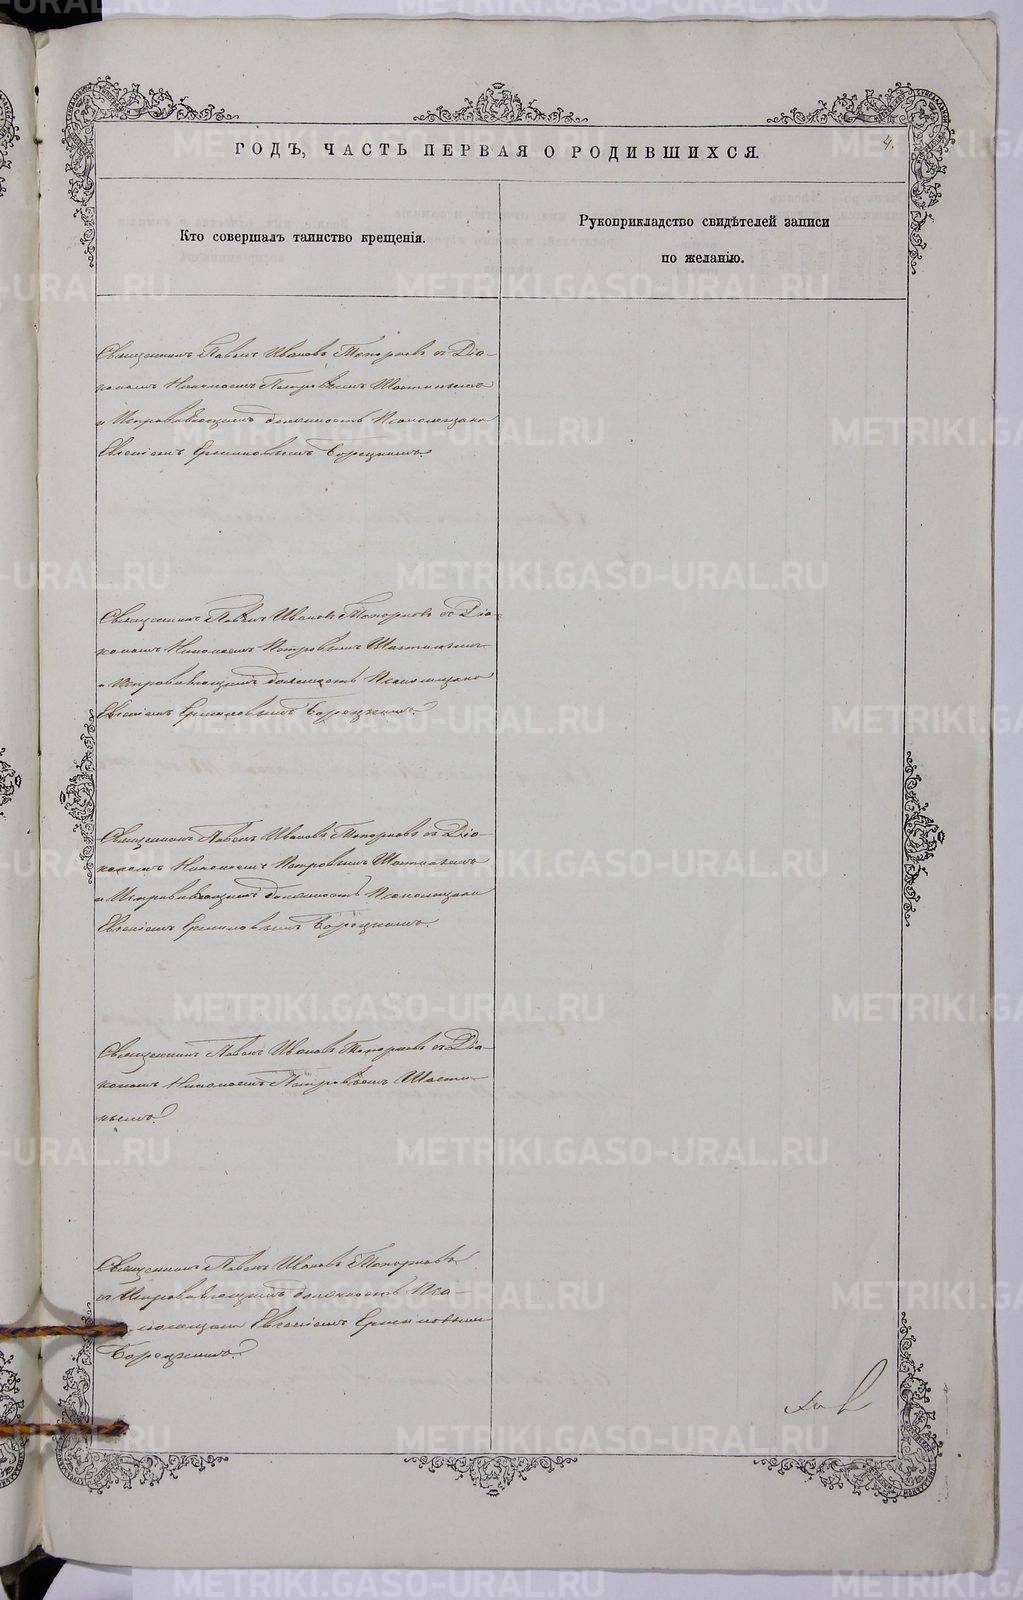 4.
ГОДЪ, ЧАСТЬ ПЕРВАЯ О РОДИВШИХСЯ.
Кто совершалъ таинство крещенія.
Рукоприкладство свидѣтелей записи
по желанію.
Священникъ Павелъ Ивановъ Топорковъ съ Діа-
кономъ Николаемъ Петровымъ
и Исправляющимъ должность Псаломщика
Евгеніемъ Ермиловымъ Борецкимъ.
Священникъ Павелъ Ивановъ Топорковъ съ Діа-
кономъ Николаемъ Петровымъ
и Исправляющимъ должность Псаломщика
Евгеніемъ Ермиловымъ Борецкимъ.
Священникъ Павелъ Ивановъ Топорковъ съ Діа-
кономъ Николаемъ Петровымъ
и Исправляющимъ должность Псаломщика
Евгеніемъ Ермиловымъ Борецкимъ.
Священникъ Павелъ Ивановъ Топорковъ съ Діа-
кономъ Николаемъ Петровымъ
Священникъ Павелъ Ивановъ Топорковъ
съ Исправляющимъ должность Пса-
ломщика Евгеніемъ Ермиловымъ
Борецкимъ.
METRIKI.GASO-URAL.RU